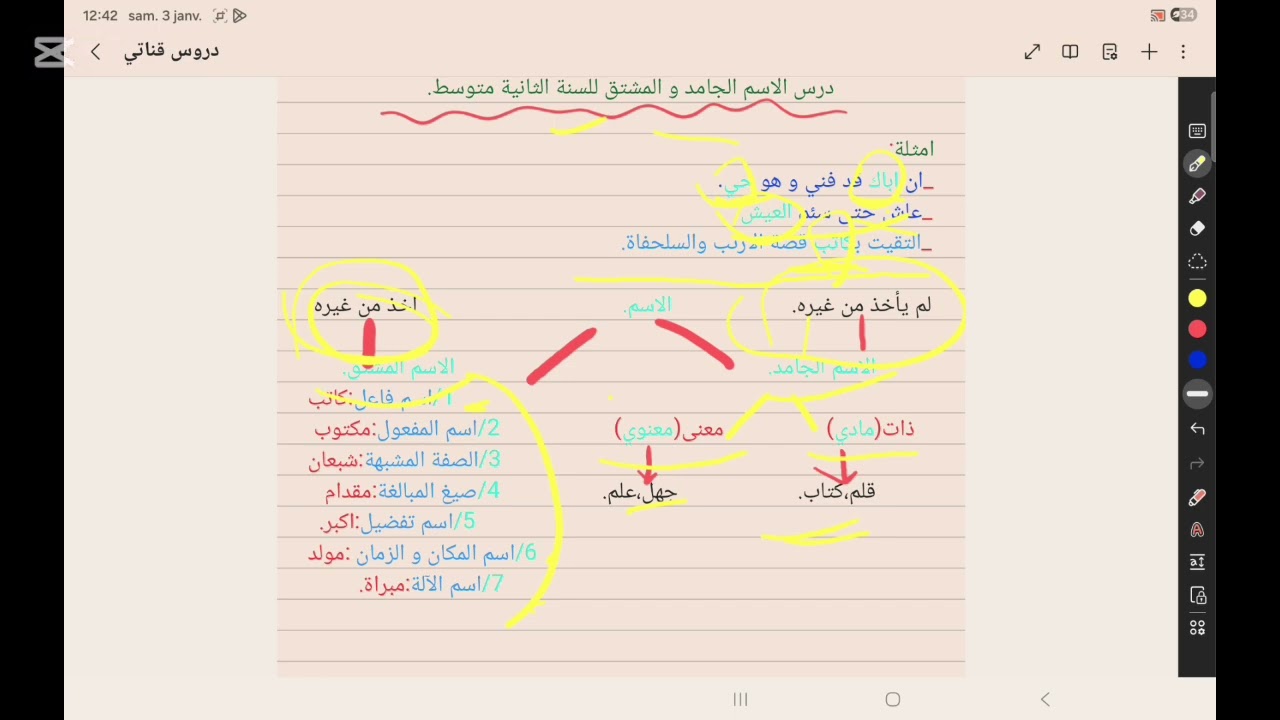 12:42 sam. 3 janv.
34
دروس قناتي
درس الاسم الجامد و المشتق للسنة الثانية متوسط.
امثلة:
_ان اباك قد فني و هو حي.
_عاش حتى سئم العيش
_التقيت بكاتب قصة الارنب والسلحفاة.
لم يأخذ من غيره.
الاسم.
اخذ من غيره
الاسم الجامد.
الاسم المشتق.
ذات(مادي)
معنى(معنوي)
قلم،كتاب.
جهل،علم.
1/اسم فاعل:كاتب
2/اسم المفعول:مكتوب
3/الصفة المشبهة:شبعان
4/صيغ المبالغة:مقدام
5/اسم تفضيل:اكبر.
6/اسم المكان و الزمان :مولد
7/اسم الآلة:مبراة.